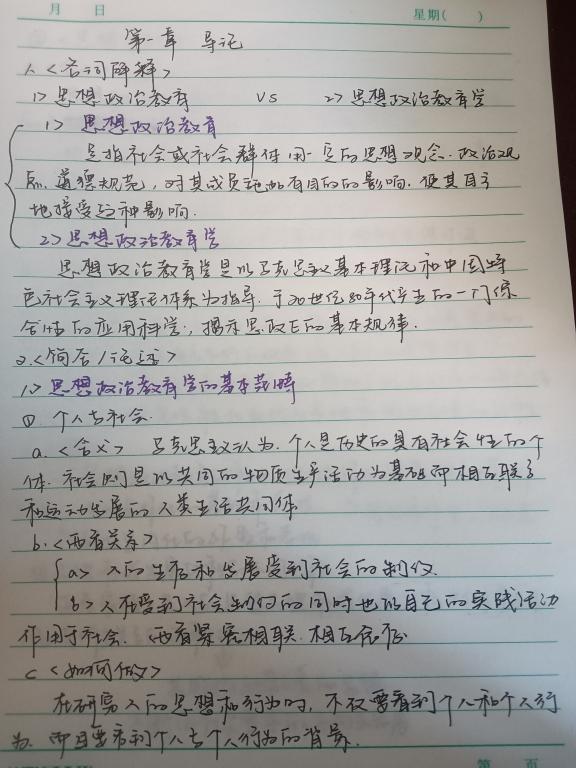 月 日 星期( )
第一章 导论
1、<名词解释>
1> 思想政治教育 VS 2> 思想政治教育学
1> 思想政治教育
是指社会或社会群体用一定的思想观念、政治观
点、道德规范,对其成员施加有目的的影响,使其自主
地接受这种影响.
2> 思想政治教育学
思想政治教育学是以马克思主义基本理论和中国特
色社会主义理论体系为指导,于20世纪80年代产生的一门综
合性的应用科学,揭示思政E的基本规律.
2.<简答/论述>
1> 思想政治教育学的基本范畴
① 个人与社会
a.<含义> 马克思主义认为,个人是历史的具有社会性的个
体.社会则是以共同的物质生产活动为基础而相互联系
和运动发展的人类生活共同体
b.<两者关系>
a> 人的生存和发展受到社会的制约.
b> 人在受到社会制约的同时也以自己的实践活动
作用于社会. 两者紧密相联.相互依存
c <如何做>
在研究人的思想和行为时,不仅要看到个人和个人行
为.而且要看到个人与个人行为的背景.
第 页